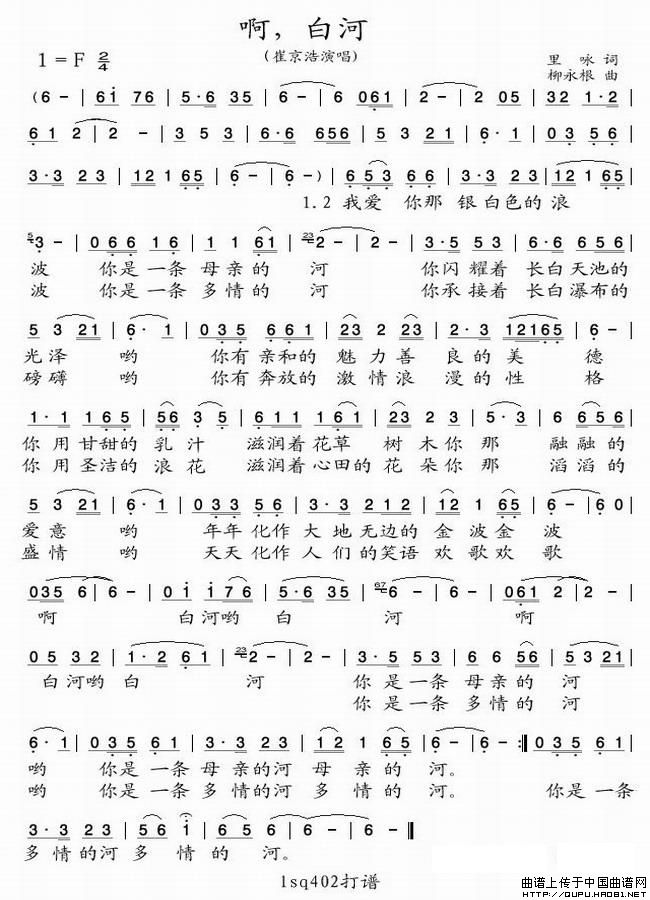 啊，白河
1=F 2/4
（崔京浩演唱）
里 咏 词
柳永根 曲
(6 - | 6i 76 | 5·6 35 | 6 - | 6 - | 6 061 | 2 - | 2 05 | 32 1·2 |
61 2 | 2 - | 3 5 3 | 6·6 656 | 5 3 21 | 6· 1 | 03 56 |
3·3 23 | 121 65 | 6 - | 6 -) | 653 66 | 5·5 23 | 121 65 |
1.2 我爱 你那 银白色的浪
5 3 - | 066 16 | 1 1 61 | 23 2 - | 2 - | 3·5 53 | 6·6 656 |
波 你是一条 母亲的 河 你闪耀着 长白天池的
波 你是一条 多情的 河 你承接着 长白瀑布的
5 3 21 | 6· 1 | 035 661 | 23 2 23 | 2·3 12165 | 6 - |
光泽 哟 你有亲和的 魅力善 良的美 德
磅礴 哟 你有奔放的 激情浪 漫的性 格
1·1 165 | 56 3 5 | 611 161 | 23 2 3 | 5·3 | 6 656 |
你用甘甜的 乳汁 滋润着花草 树木你那 融融的
你用圣洁的 浪花 滋润着心田的 花朵你那 滔滔的
5 3 21 | 6· 1 | 033 56 | 3·3 212 | 12 1 65 | 6 - | 6 0 |
爱意 哟 年年化作 大地无边的 金波金 波
盛情 哟 天天化作 人们的笑语 欢歌欢 歌
035 6 | 6 - | 0i i76 | 5 - | 67 6 - | 6 - | 061 2 | 2 - |
啊 白河哟 白 河 啊
05 32 | 1·2 61 | 23 2 - | 2 - | 3·5 53 | 6 6 56 | 5 3 21 |
白河哟 白 河 你是一条 母亲的 河
你是一条 多情的 河
6· 1 | 035 61 | 3·3 23 | 12 1 65 | 6 - | 6 - :| 035 61 |
哟 你是一条 母亲的河 母亲的 河。
哟 你是一条 多情的河 多情的 河。 你是一条
3·3 23 | 56 i | 6 - | 6 - | i - | i - ||
多情的河 多情的 河。
1sq402打谱
曲谱上传于中国曲谱网
HTTP://QUPU.HAO81.NET